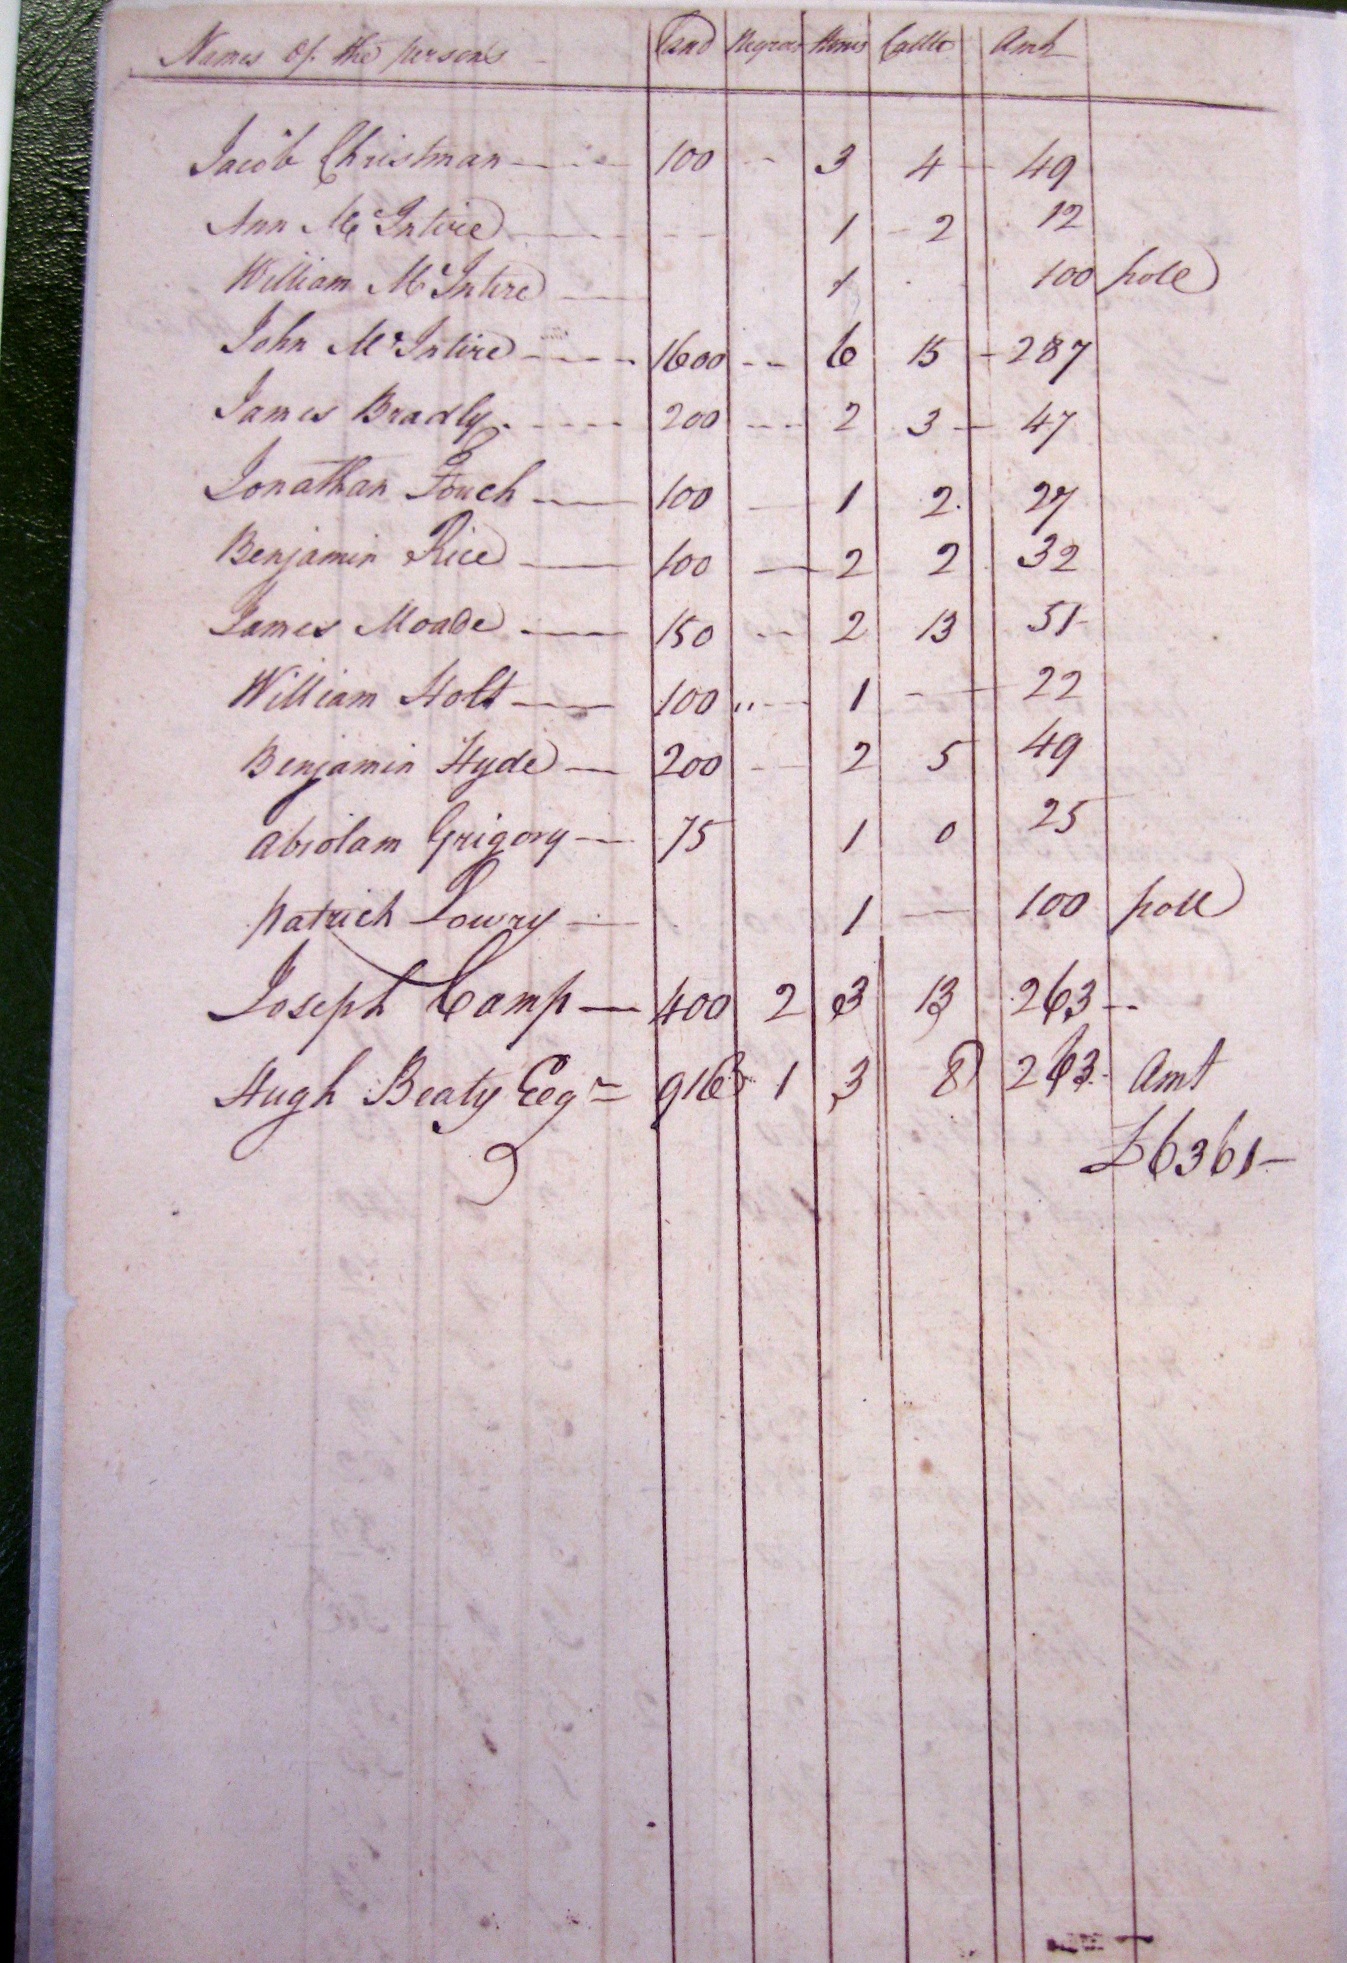 Names of the persons Land Negroes Horses Cattle Amt
Jacob Christman 100 3 4 49
Ann McIntire 1 2 12
William McIntire 1 100 poll
John McIntire 1600 6 15 287
James Bradly 200 2 3 47
Jonathan Fouch 100 1 2 27
Benjamin Rice 100 2 2 32
James Moade 150 2 13 51
William Holt 100 1 22
Benjamin Hyde 200 2 5 49
Absolam Grigory 75 1 0 25
patrick Lowry 1 100 poll
Joseph Camp 400 2 3 13 263
Hugh Beaty Esqr 916 1 3 8 263 Amt
£6361